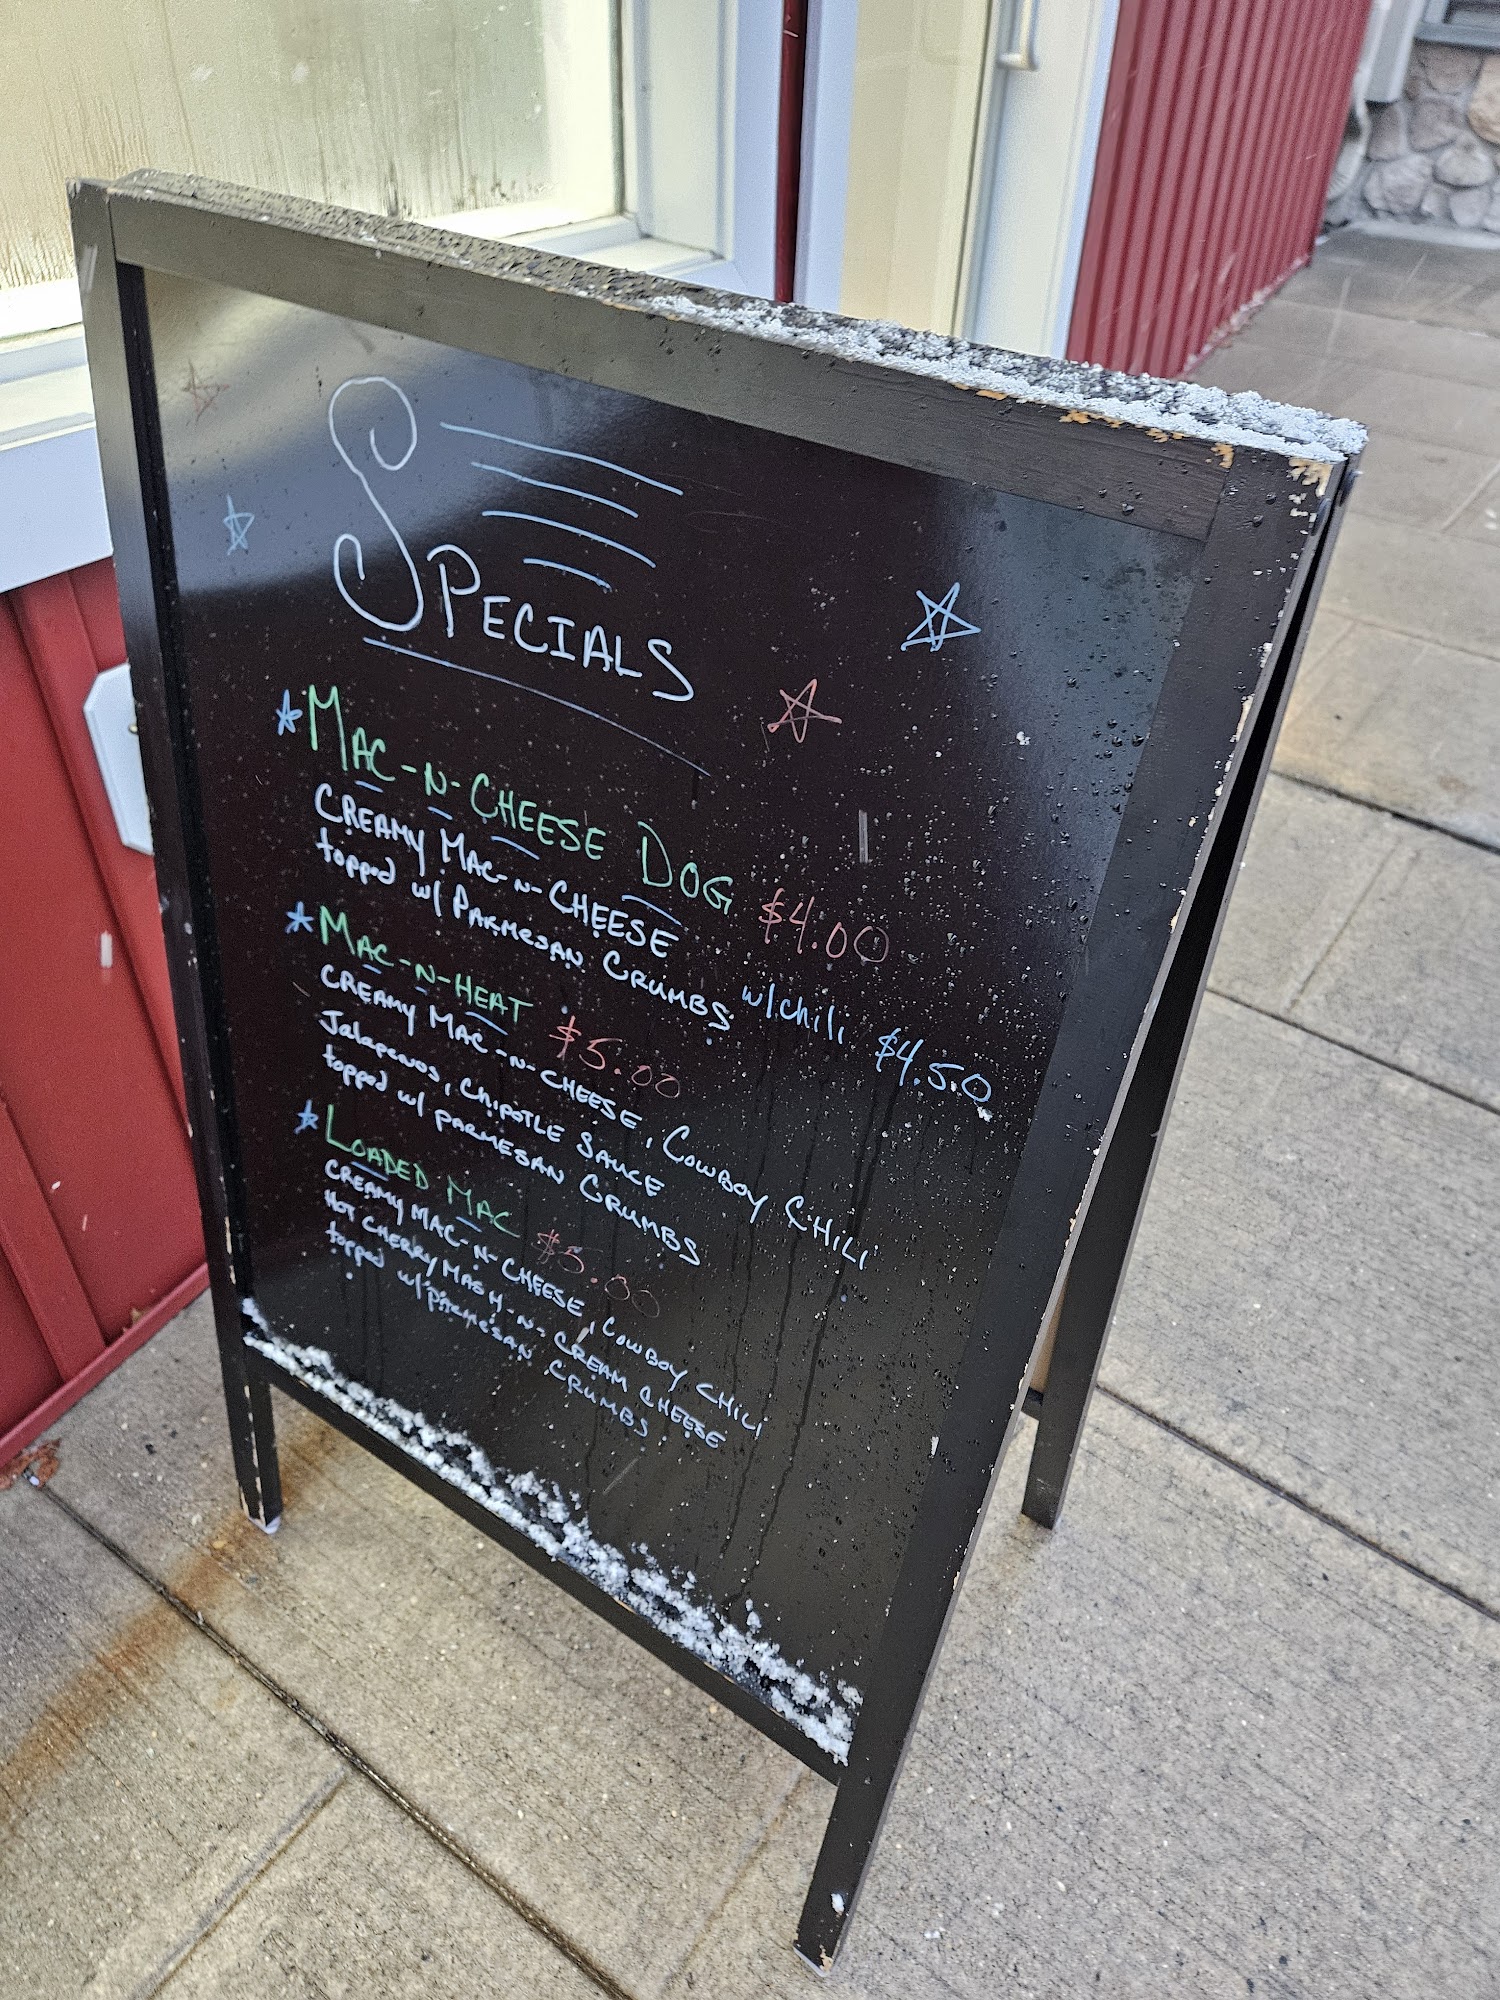 SPECIALS
MAC-N-CHEESE DOG $4.00
CREAMY MAC-N-CHEESE
topped w/ PARMESAN CRUMBS w/chili $4.50
MAC-N-HEAT $5.00
CREAMY MAC-N-CHEESE, COWBOY CHILI
Jalapenos, CHIPOTLE SAUCE
topped w/ PARMESAN CRUMBS
LOADED MAC $5.00
CREAMY MAC-N-CHEESE, COWBOY CHILI
HOT CHERRY MASH-N-CREAM CHEESE
topped w/ PARMESAN CRUMBS